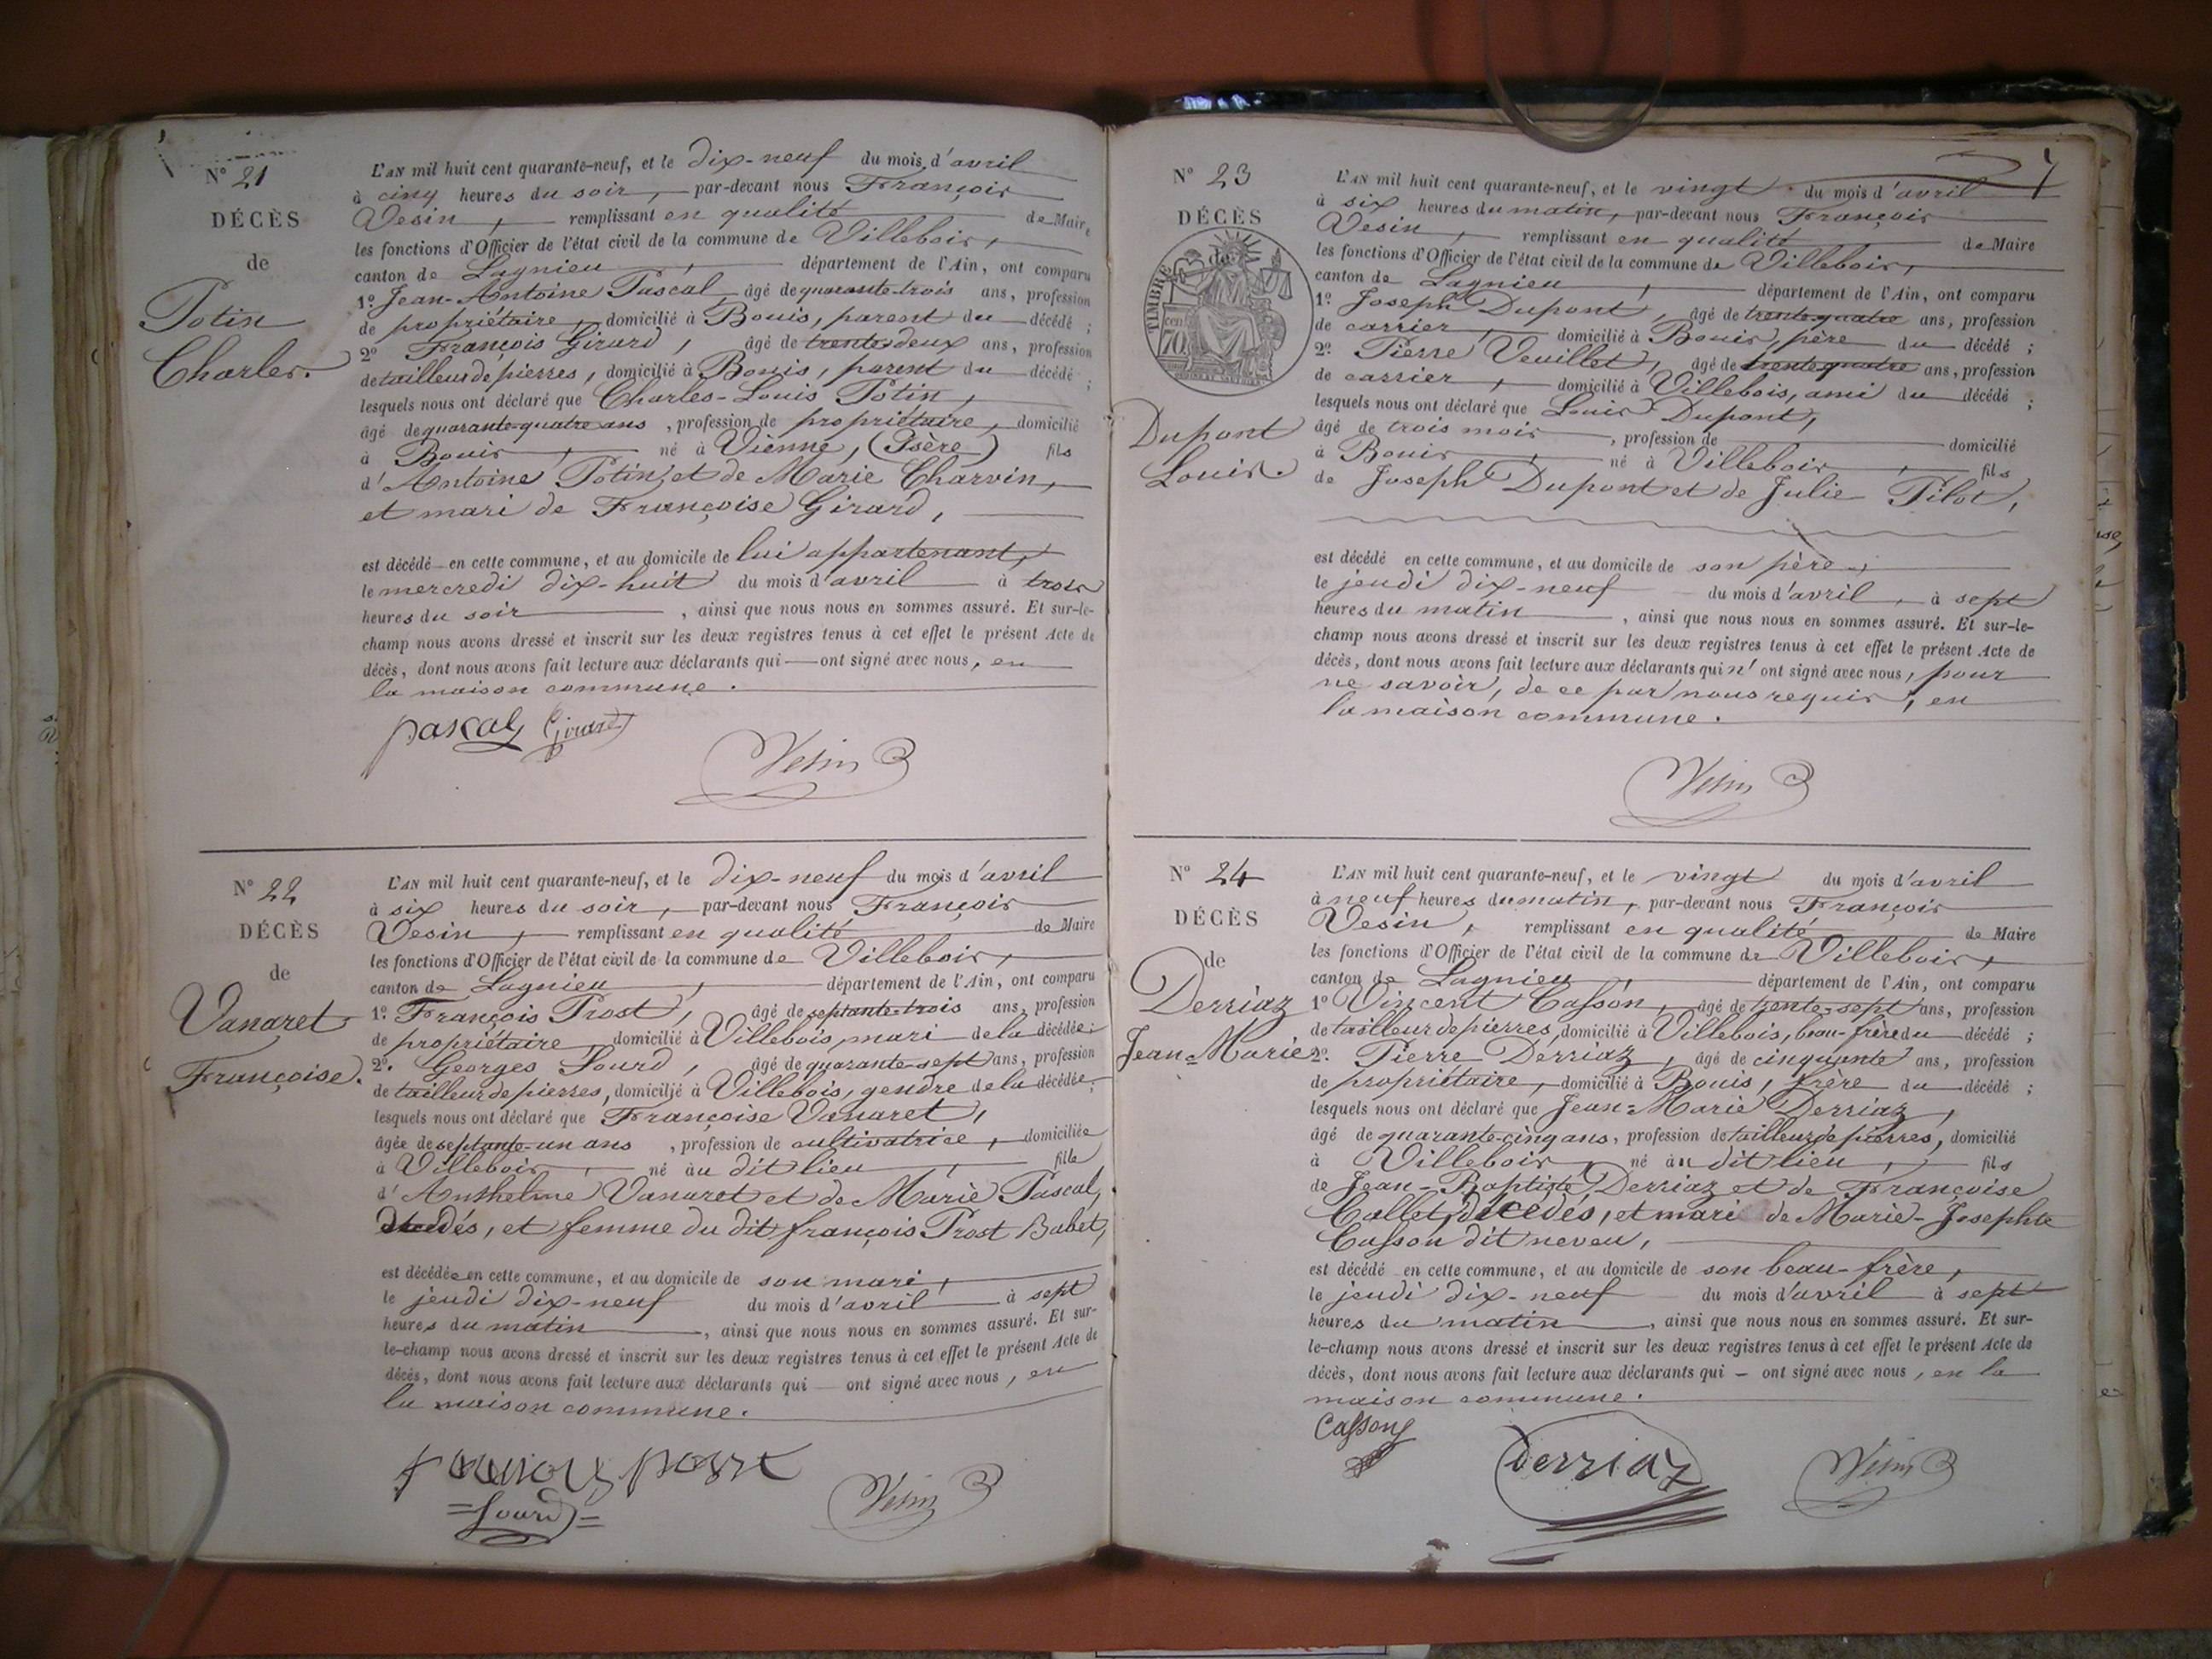 N° 21
DÉCÈS
de
Potin
Charles.
L'AN mil huit cent quarante-neuf, et le dix-neuf du mois d'avril
à cinq heures du soir, par-devant nous François
Vesin, remplissant en qualité de Maire
les fonctions d'Officier de l'état civil de la commune de Villebois,
canton de Lagnieu, département de l'Ain, ont comparu
1° Jean-Antoine Pascal, âgé de quarante-trois ans, profession
de propriétaire, domicilié à Bouis, parent du décédé ;
2° François Girard, âgé de trente-deux ans, profession
de tailleur de pierres, domicilié à Bouis, parent du décédé ;
lesquels nous ont déclaré que Charles-Louis Potin,
âgé de quarante-quatre ans, profession de propriétaire, domicilié
à Bouis, né à Vienne, (Isère) fils
d'Antoine Potin et de Marie Charvin,
et mari de Françoise Girard,
est décédé en cette commune, et au domicile de lui appartenant,
le mercredi dix-huit du mois d'avril à trois
heures du soir, ainsi que nous nous en sommes assuré. Et sur-le-
champ nous avons dressé et inscrit sur les deux registres tenus à cet effet le présent Acte de
décès, dont nous avons fait lecture aux déclarants qui ont signé avec nous, en
la maison commune.
pascal Girard
Vesin
N° 22
DÉCÈS
de
Vanaret
Françoise.
L'AN mil huit cent quarante-neuf, et le dix-neuf du mois d'avril
à six heures du soir, par-devant nous François
Vesin, remplissant en qualité de Maire
les fonctions d'Officier de l'état civil de la commune de Villebois,
canton de Lagnieu, département de l'Ain, ont comparu
1° François Prost, âgé de septante-trois ans, profession
de propriétaire, domicilié à Villebois, mari de la décédée ;
2° Georges Sourd, âgé de quarante-sept ans, profession
de tailleur de pierres, domicilié à Villebois, gendre de la décédée ;
lesquels nous ont déclaré que Françoise Vanaret,
âgée de septante-un ans, profession de cultivatrice, domiciliée
à Villebois, né au dit lieu, fille
d'Anthelme Vanaret et de Marie Pascal,
décédés, et femme du dit françois Prost Babet,
est décédée en cette commune, et au domicile de son mari,
le jeudi dix-neuf du mois d'avril à sept
heures du matin, ainsi que nous nous en sommes assuré. Et sur-
le-champ nous avons dressé et inscrit sur les deux registres tenus à cet effet le présent Acte de
décès, dont nous avons fait lecture aux déclarants qui ont signé avec nous, en
la maison commune.
Sourd
Vesin
N° 23
DÉCÈS
de
TIMBRE
70
Dupont
Louis.
L'AN mil huit cent quarante-neuf, et le vingt du mois d'avril
à six heures du matin, par-devant nous François
Vesin, remplissant en qualité de Maire
les fonctions d'Officier de l'état civil de la commune de Villebois,
canton de Lagnieu, département de l'Ain, ont comparu
1° Joseph Dupont, âgé de trente-quatre ans, profession
de carrier, domicilié à Bouis, père du décédé ;
2° Pierre Veuillet, âgé de trente-quatre ans, profession
de carrier, domicilié à Villebois, ami du décédé ;
lesquels nous ont déclaré que Louis Dupont,
âgé de trois mois, profession de domicilié
à Bouis, né à Villebois, fils
de Joseph Dupont et de Julie Pilot,
est décédé en cette commune, et au domicile de son père,
le jeudi dix-neuf du mois d'avril, à sept
heures du matin, ainsi que nous nous en sommes assuré. Et sur-le-
champ nous avons dressé et inscrit sur les deux registres tenus à cet effet le présent Acte de
décès, dont nous avons fait lecture aux déclarants qui n'ont signé avec nous, pour
ne savoir, de ce par nous requis, en
la maison commune.
Vesin
N° 24
DÉCÈS
de
Derriaz
Jean-Marie
L'AN mil huit cent quarante-neuf, et le vingt du mois d'avril
à neuf heures du matin, par-devant nous François
Vesin, remplissant en qualité de Maire
les fonctions d'Officier de l'état civil de la commune de Villebois,
canton de Lagnieu, département de l'Ain, ont comparu
1° Vincent Casson, âgé de trente-sept ans, profession
de tailleur de pierres, domicilié à Villebois, beau-frère du décédé ;
2° Pierre Derriaz, âgé de cinquante ans, profession
de propriétaire, domicilié à Bouis, frère du décédé ;
lesquels nous ont déclaré que Jean-Marie Derriaz,
âgé de quarante-cinq ans, profession de tailleur de pierres, domicilié
à Villebois, né au dit lieu, fils
de Jean-Baptiste Derriaz et de Françoise
Collet, décédés, et mari de Marie-Josephte
Casson dit neveu,
est décédé en cette commune, et au domicile de son beau-frère,
le jeudi dix-neuf du mois d'avril à sept
heures du matin, ainsi que nous nous en sommes assuré. Et sur-
le-champ nous avons dressé et inscrit sur les deux registres tenus à cet effet le présent Acte de
décès, dont nous avons fait lecture aux déclarants qui ont signé avec nous, en la
maison commune.
Casson
Derriaz
Vesin